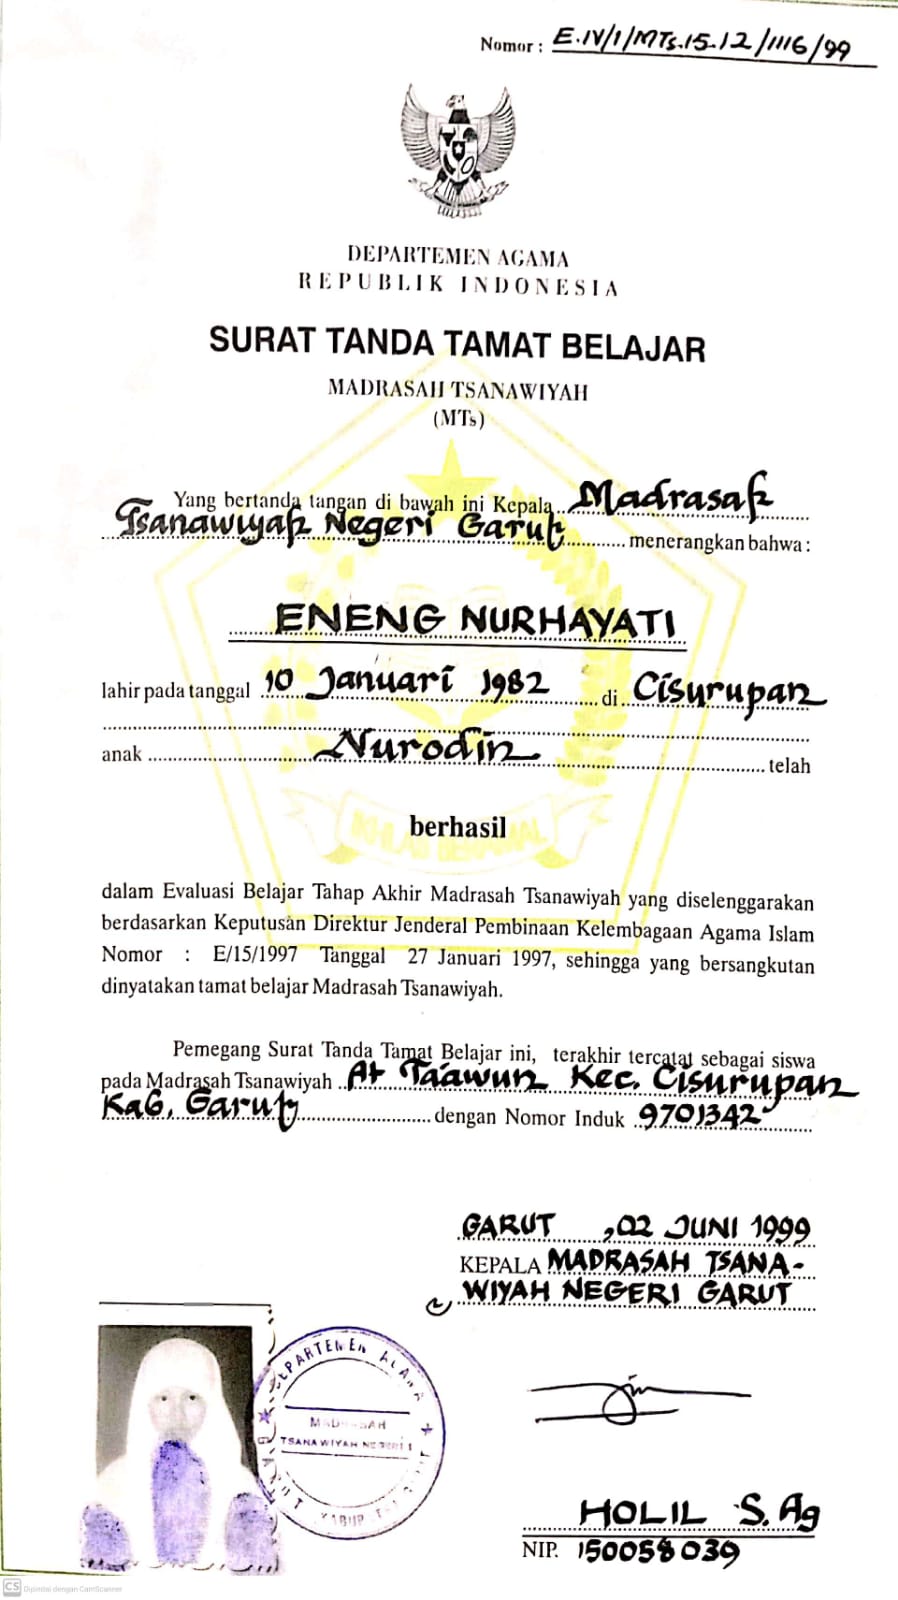 Nomor : E.IV/1/MTs.15-12/1116/99
DEPARTEMEN AGAMA
REPUBLIK INDONESIA
SURAT TANDA TAMAT BELAJAR
MADRASAH TSANAWIYAH
(MTs)
Yang bertanda tangan di bawah ini Kepala Madrasah
Tsanawiyah Negeri Garut menerangkan bahwa :
ENENG NURHAYATI
lahir pada tanggal 10 Januari 1982 di Cisurupan
anak Nurodin telah
IKHLAS BERAMAL
berhasil
dalam Evaluasi Belajar Tahap Akhir Madrasah Tsanawiyah yang diselenggarakan
berdasarkan Keputusan Direktur Jenderal Pembinaan Kelembagaan Agama Islam
Nomor : E/15/1997 Tanggal 27 Januari 1997, sehingga yang bersangkutan
dinyatakan tamat belajar Madrasah Tsanawiyah.
Pemegang Surat Tanda Tamat Belajar ini, terakhir tercatat sebagai siswa
pada Madrasah Tsanawiyah At Ta'awun Kec. Cisurupan
Kab. Garut dengan Nomor Induk 9701342
GARUT , 02 JUNI 1999
KEPALA MADRASAH TSANA-
WIYAH NEGERI GARUT
DEPARTEMEN AGAMA
MADRASAH
TSANAWIYAH NEGERI 1
HOLIL S.Ag
NIP. 150058039
CS Dipindai dengan CamScanner